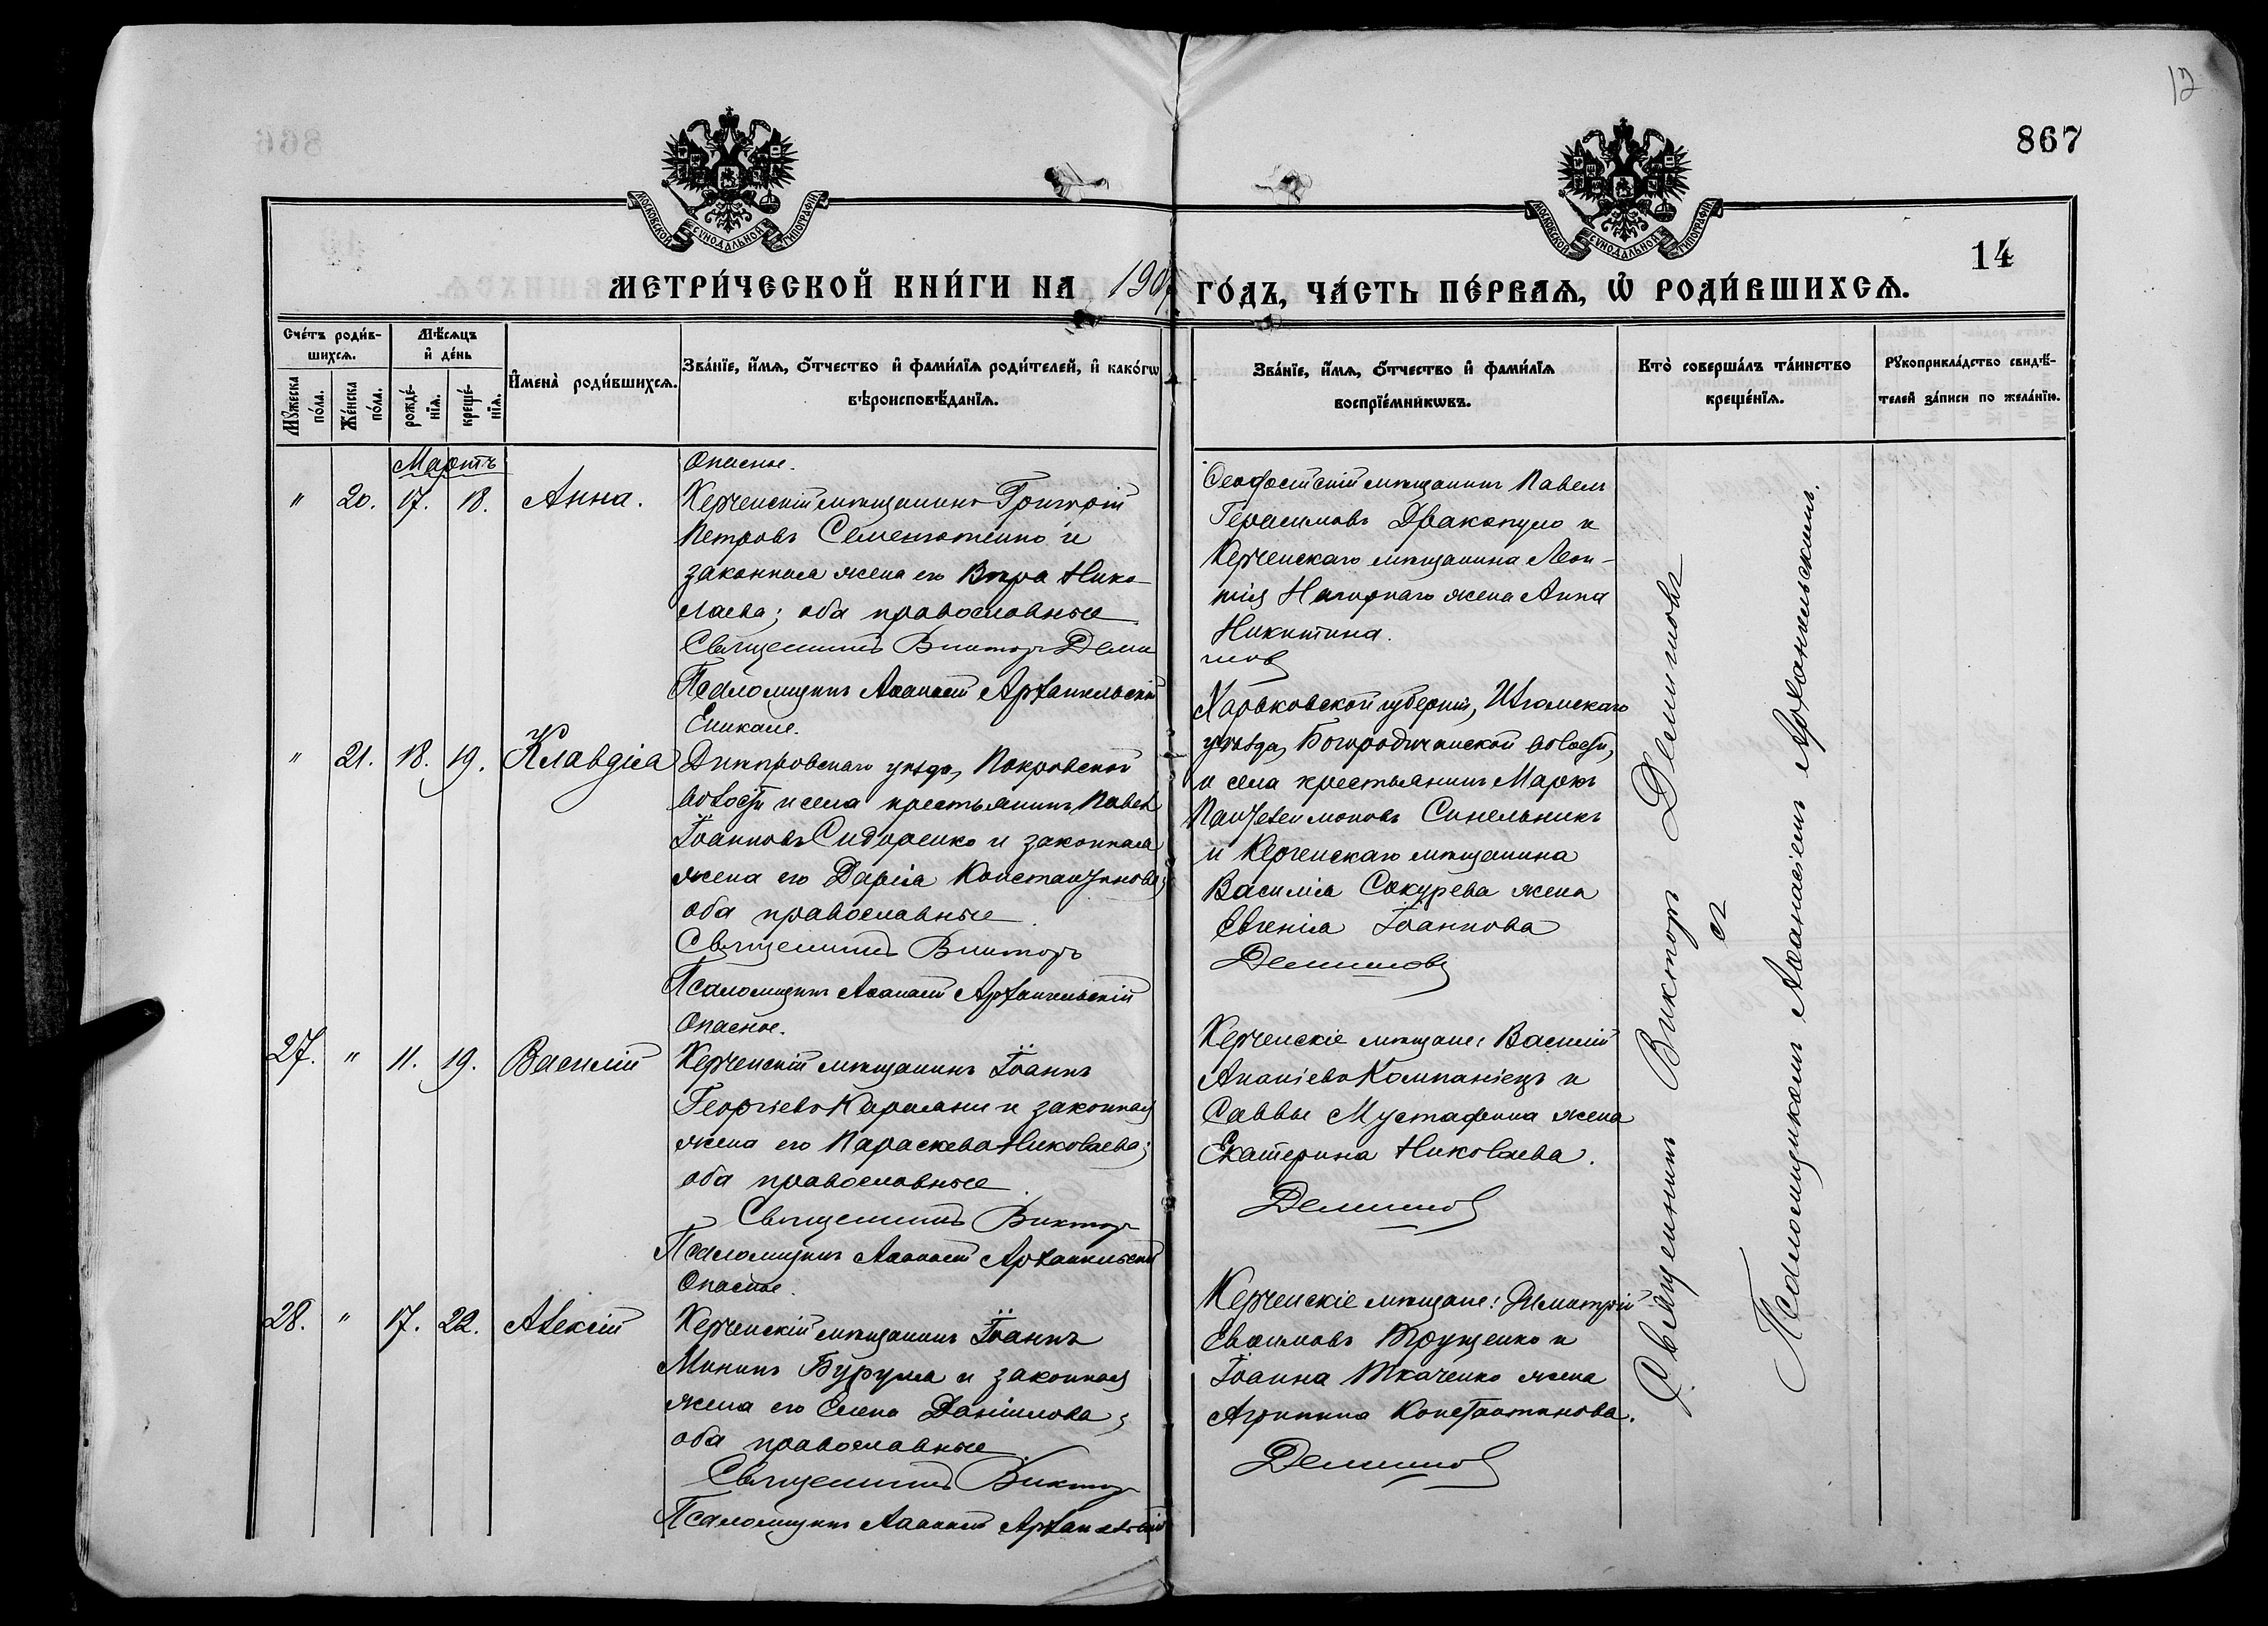 12
867
МОСКОВСКОЙ СѴНОДАЛЬНОЙ ТИПОГРАФІИ
МОСКОВСКОЙ СѴНОДАЛЬНОЙ ТИПОГРАФІИ
14
МЕТРИ́ЧЕСКОЙ КНИ́ГИ НА 190 ГО́ДЪ, ЧА́СТЬ ПЕ́РВАѦ, Ѡ҆ РОДИ́ВШИХСѦ.
Сче́тъ роди́в-
шихсѧ.
Мꙋ́жеска по́ла.
Же́нска по́ла.
Мѣ́сѧцъ
и҆ де́нь
рожде́-
нїѧ.
креще́-
нїѧ.
И҆мена̀ роди́вшихсѧ.
Зва́нїе, и҆́мѧ, ѻ҆́тчество и҆ фами́лїѧ роди́телей, и҆ како́гѡ
вѣроисповѣ́данїѧ.
Зва́нїе, и҆́мѧ, ѻ҆́тчество и҆ фами́лїѧ
воспрїе́мникѡвъ.
Кто̀ соверша́лъ та́инство
креще́нїѧ.
Рꙋкоприкла́дство свидѣ́-
телей за́писи по жела́нїю.
Мартъ
" 20. 17. 18. Анна.
Опасное.
Керченскій мѣщанинъ Григорій
Петровъ Семенютенко и
законная жена его Вѣра Нико-
лаева; оба православные
Священникъ Викторъ Деми
Псаломщикъ Аѳанасій Архангельскій
Ѳеодосійскій мѣщанинъ Павелъ
Герасимовъ Дракопуло и
Керченскаго мѣщанина Леон-
тія Нагорнаго жена Анна
Никитина.
мовъ
" 21. 18. 19. Клавдія
Еникале.
Днѣпровскаго уѣзда, Покровской
волости и села крестьянинъ Павелъ
Іоанновъ Сидоренко и законная
жена его Дарія Константинова;
оба православные.
Священникъ Викторъ
Псаломщикъ Аѳанасій Архангельскій
Харьковской губерніи, Изюмскаго
уѣзда, Богородичанской волости,
и села крестьянинъ Маркъ
Пантелеимоновъ Синельникъ
и Керченскаго мѣщанина
Василія Сокурева жена
Евгенія Іоаннова
Демимовъ
27. " 11. 19. Василій
Опасное.
Керченскій мѣщанинъ Іоаннъ
Георгіевъ Караманъ и законная
жена его Параскева Николаева;
оба православные.
Священникъ Викторъ
Псаломщикъ Аѳанасій Архангельскій
Керченскіе мѣщане: Василій
Ананіевъ Компаніецъ и
Саввы Мустафина жена
Екатерина Николаева.
Демимовъ
28. " 17. 22. Алексій
Опасное.
Керченскій мѣщанинъ Іоаннъ
Мининъ Бурума и законная
жена его Елена Даніилова;
оба православные.
Священникъ Викторъ
Псаломщикъ Аѳанасій Архангельскій
Керченскіе мѣщане: Димитрій
Евѳимовъ Трущенко и
Іоанна Ткаченко жена
Агриппина Константинова.
Демимовъ
Священникъ Викторъ Демимовъ
съ
Псаломщикомъ Аѳанасіемъ Архангельскимъ.